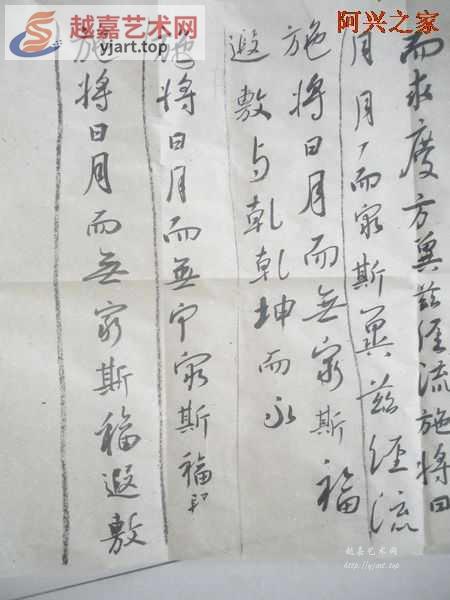 越嘉艺术网
yjart.net
阿兴之家
而永度方冀兹经流施将日
月月而穷斯冀兹经流
施将日月而無穷斯福
遐敷与乾乾坤而永
施将日月而無穷斯福
施将日月而無穷斯福遐敷
越嘉艺术网
http://yjart.net